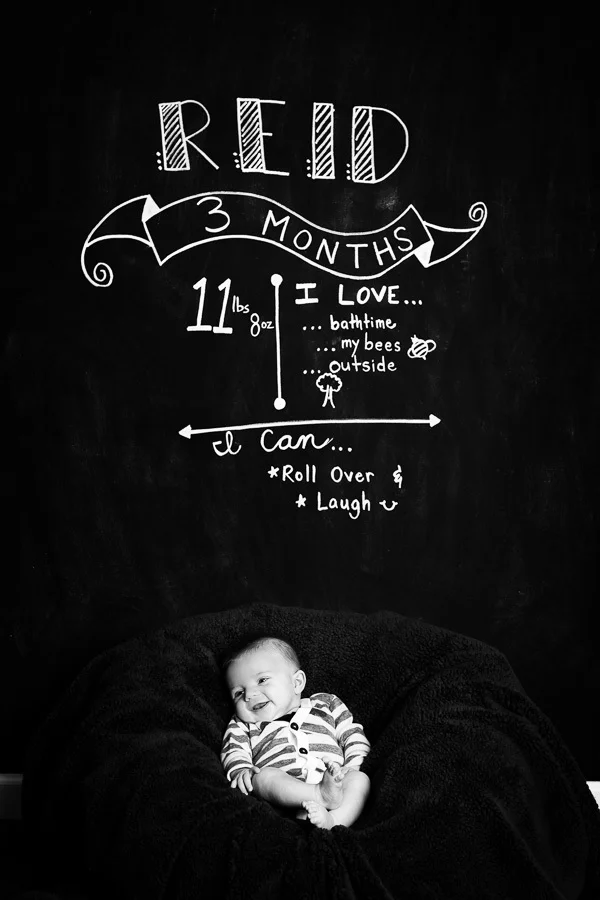 REID
3 MONTHS
11 lbs 8oz
I LOVE...
... bathtime
... my bees
... outside
I Can...
*Roll Over &
* Laugh